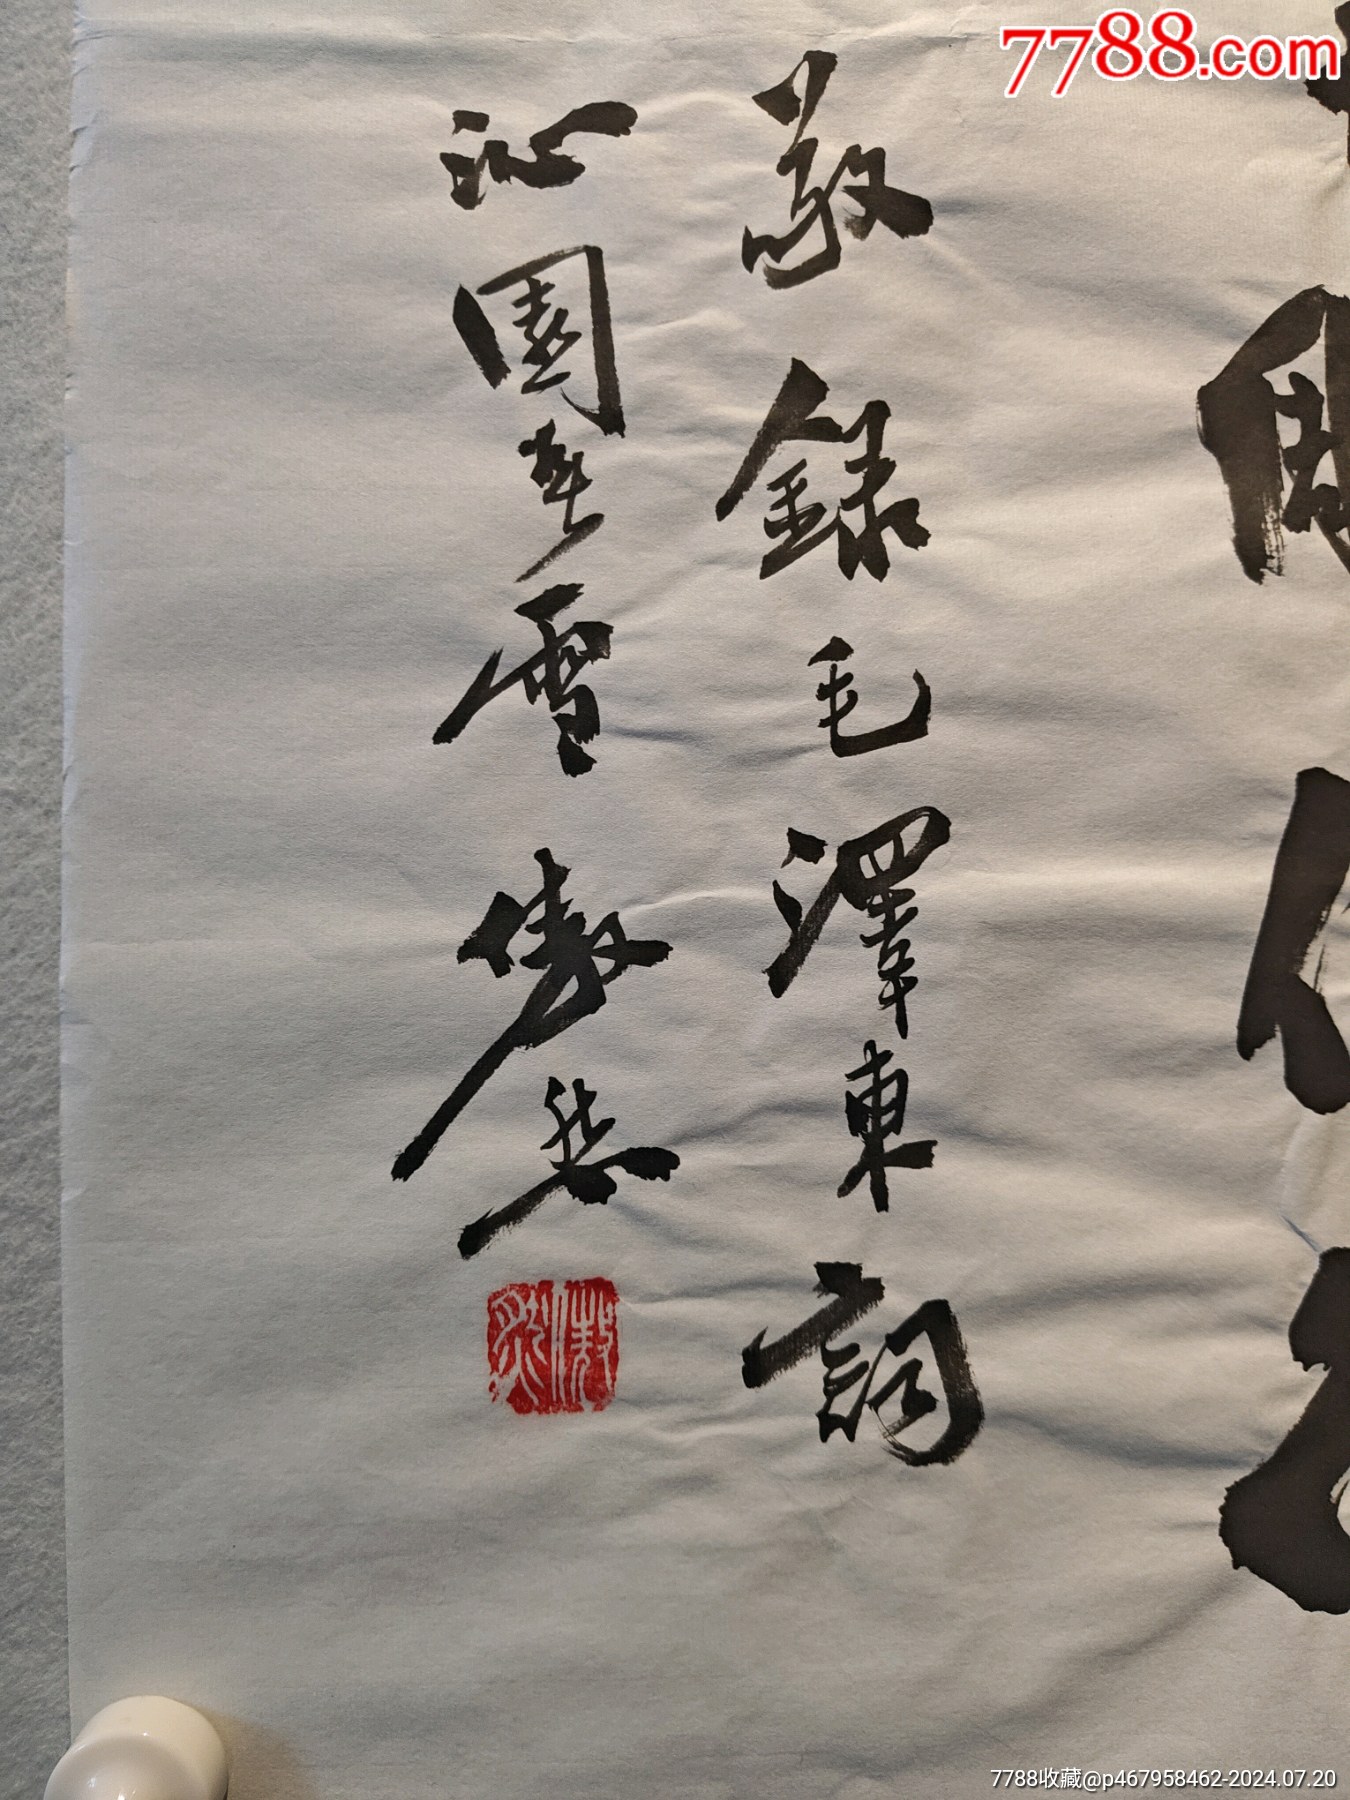 7788.com
敬錄毛澤東詞
沁園春雪 傲然
傲然
7788收藏@p467958462-2024.07.20